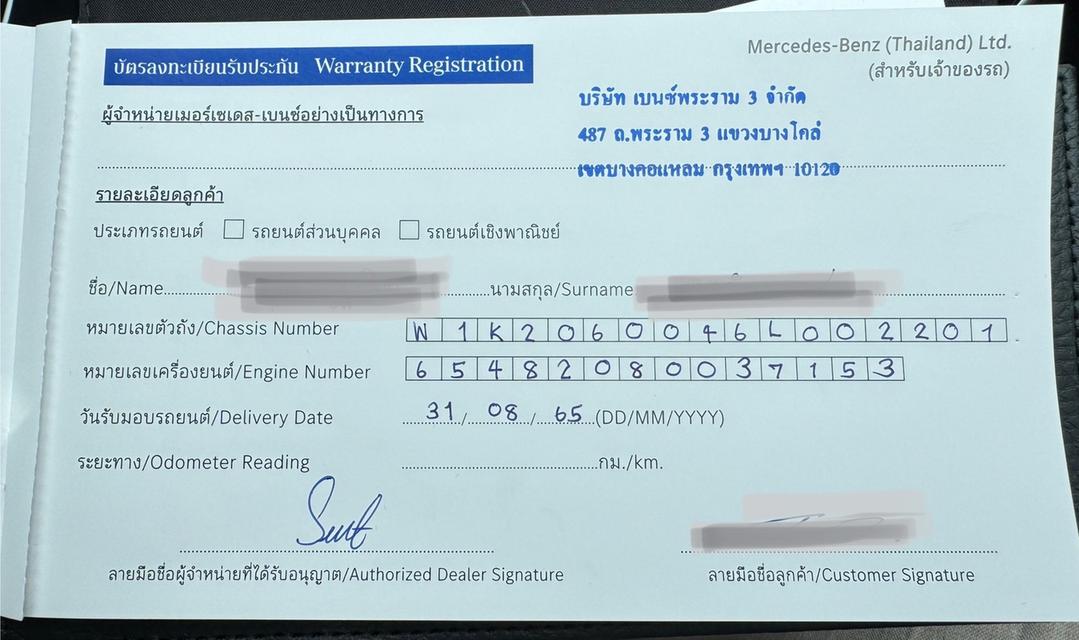 บัตรลงทะเบียนรับประกัน Warranty Registration
Mercedes-Benz (Thailand) Ltd.
(สำหรับเจ้าของรถ)
ผู้จำหน่ายเมอร์เซเดส-เบนซ์อย่างเป็นทางการ
บริษัท เบนซ์พระราม 3 จำกัด
487 ถ.พระราม 3 แขวงบางโคล่
เขตบางคอแหลม กรุงเทพฯ 10120
รายละเอียดลูกค้า
ประเภทรถยนต์ รถยนต์ส่วนบุคคล รถยนต์เชิงพาณิชย์
ชื่อ/Name นามสกุล/Surname
หมายเลขตัวถัง/Chassis Number W1K2060046L002201
หมายเลขเครื่องยนต์/Engine Number 65482080037153
วันรับมอบรถยนต์/Delivery Date 31/08/65 (DD/MM/YYYY)
ระยะทาง/Odometer Reading กม./km.
ลายมือชื่อผู้จำหน่ายที่ได้รับอนุญาต/Authorized Dealer Signature
ลายมือชื่อลูกค้า/Customer Signature